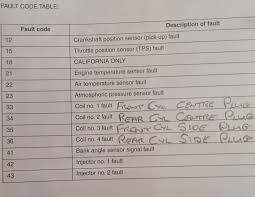 FAULT CODE TABLE:
Fault code Description of fault
12 Crankshaft position sensor (pick-up) fault
15 Throttle position sensor (TPS) fault
18 CALIFORNIA ONLY
21 Engine temperature sensor fault
22 Air temperature sensor fault
23 Atmospheric pressure sensor fault
33 Coil no. 1 fault FRONT CYL CENTRE PLUG
34 Coil no. 2 fault REAR CYL CENTRE PLUG
35 Coil no. 3 fault FRONT CYL SIDE PLUG
36 Coil no. 4 fault REAR CYL SIDE PLUG
41 Bank angle sensor signal fault
42 Injector no. 1 fault
43 Injector no. 2 fault